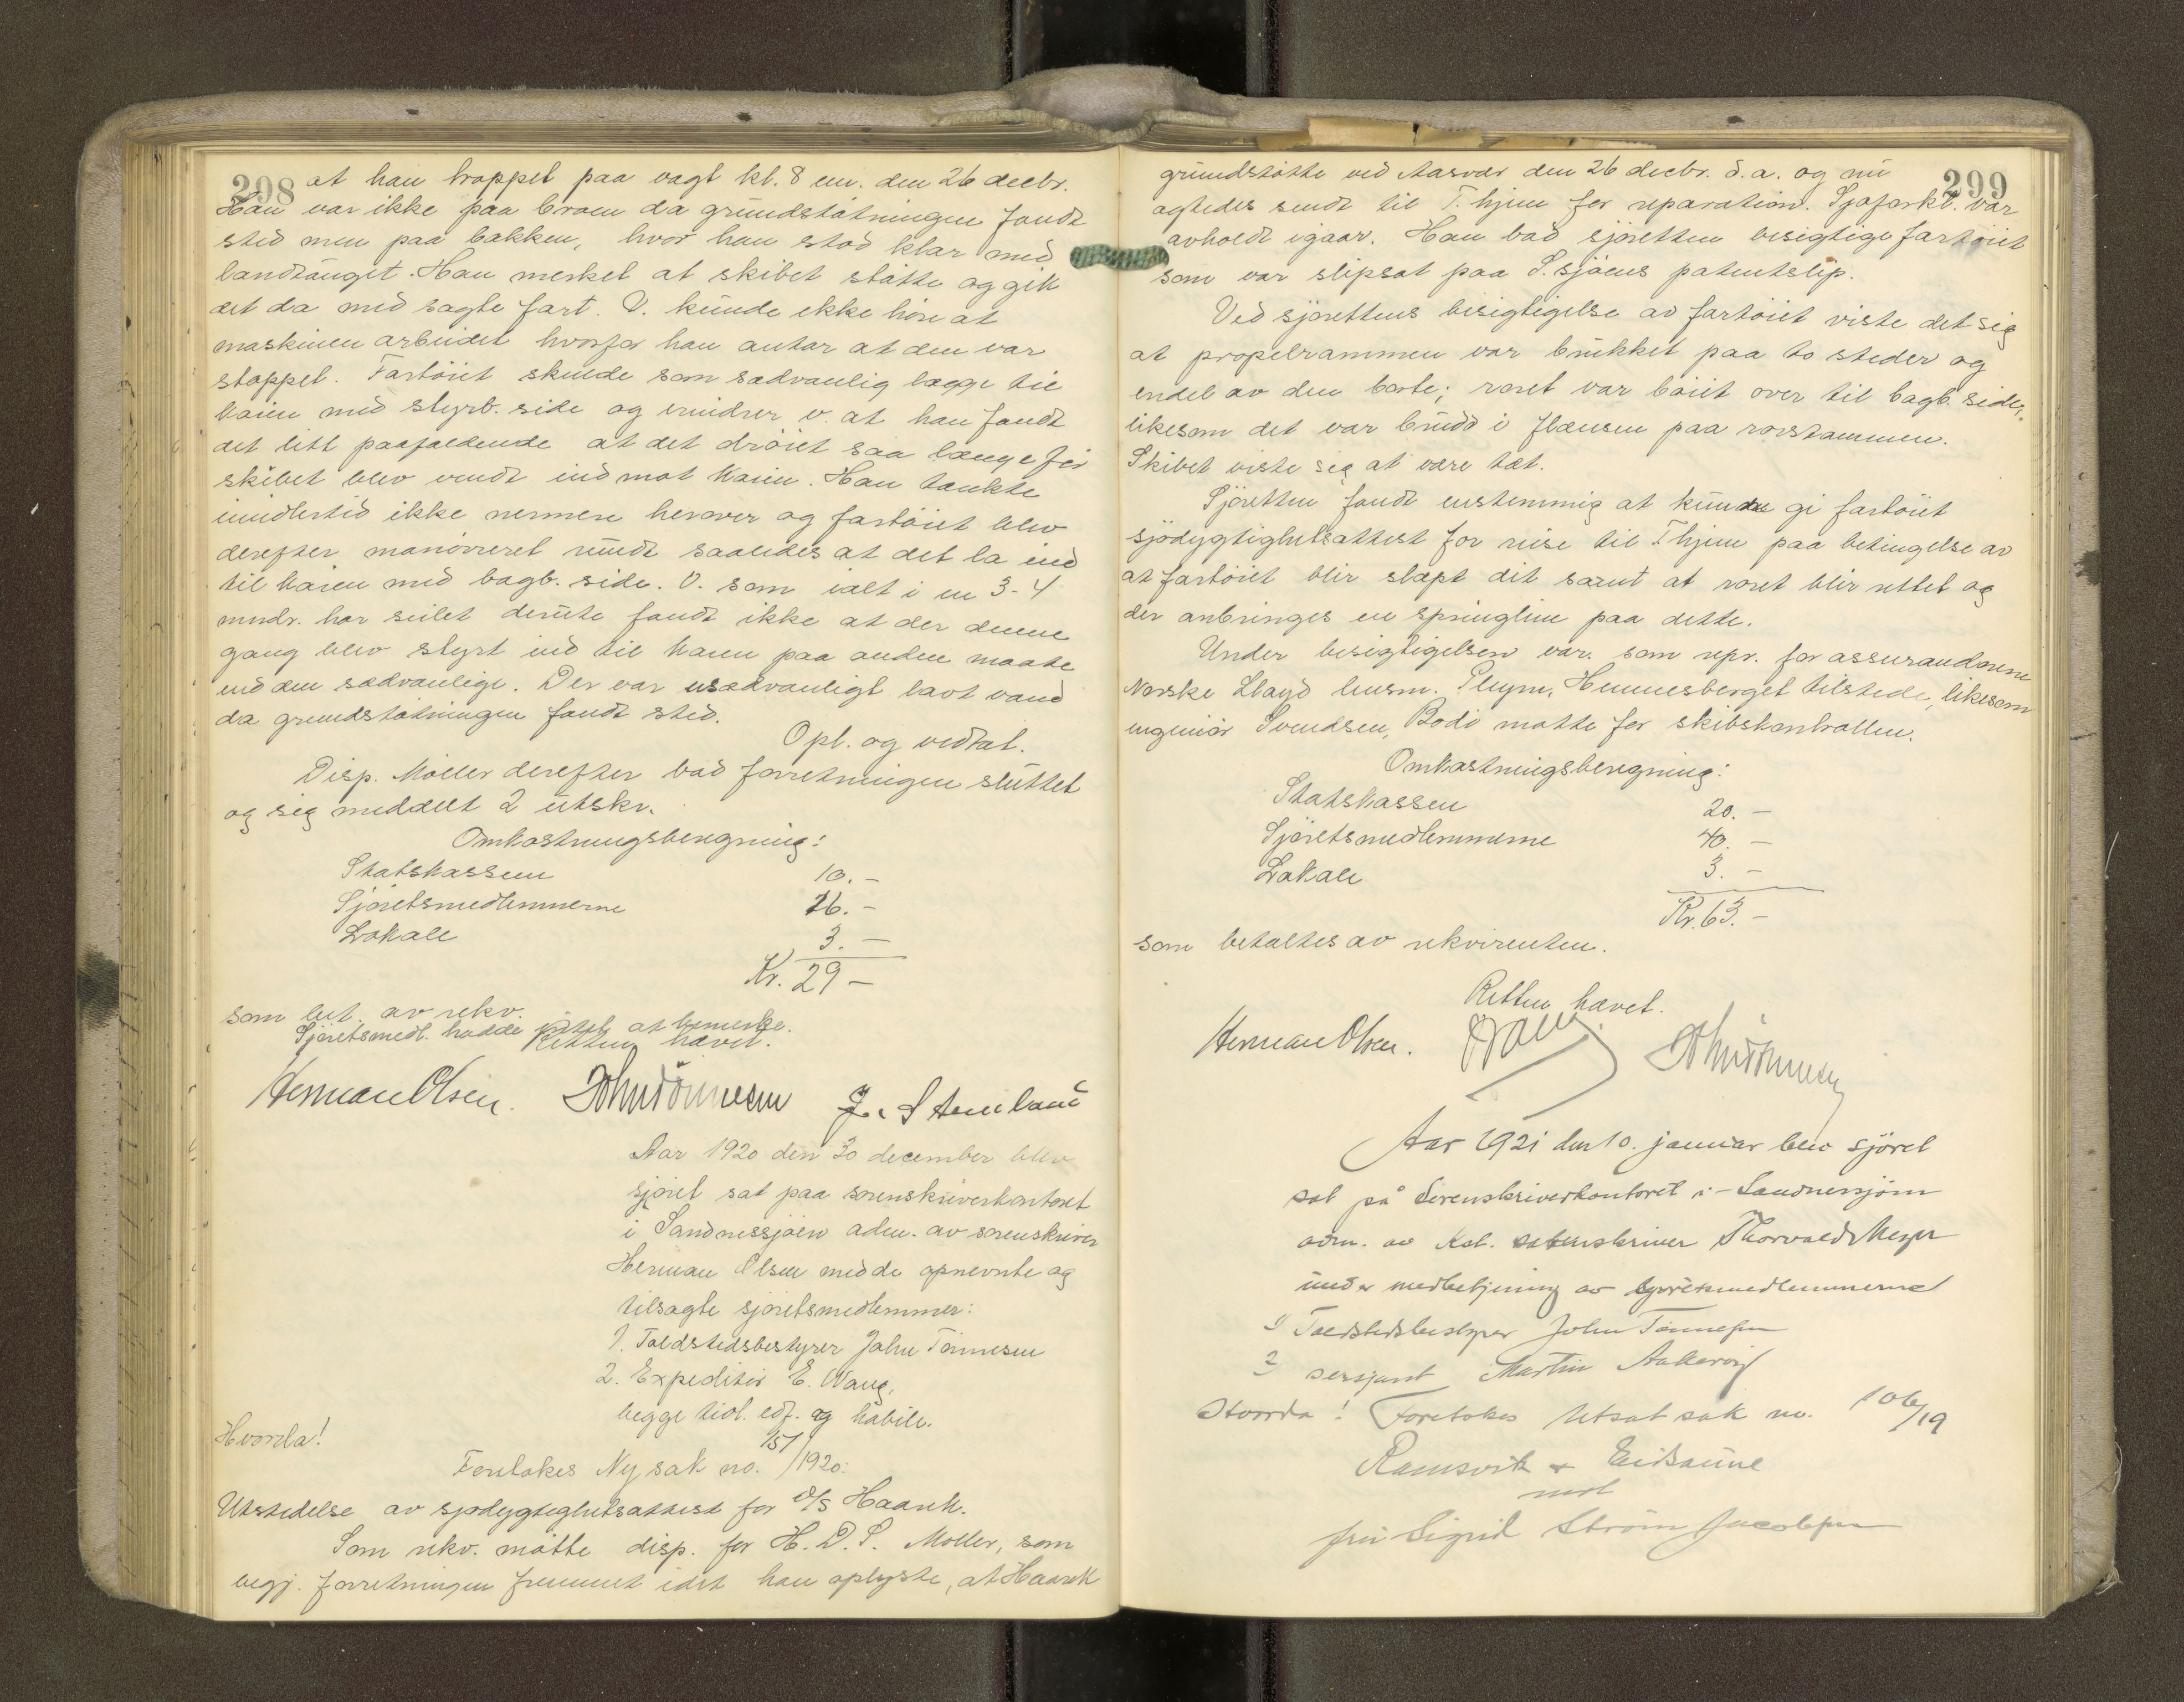 298
at han troppet paa vagt kl. 8 em. den 26 decbr.
Han var ikke paa broen da grundstötningen fandt
sted men paa bakken, hvor han stod klar med
landtauget. Han merket at skibet stötte og gik
det da med sagte fart. V. kunde ikke höre at
maskinen arbeidet hvorfor han antar at den var
stoppet. Fartöiet skulde som sædvanlig lægge til
kaien med styrb. side og erindrer v. at han fandt
det litt paafaldende at det dröiet saa længe för
skibet blev vendt ind mot kaien. Han tænkte
imidlertid ikke nermere herover og fartöiet blev
derefter manövreret rundt saaledes at det la ind
til kaien med bagb. side. V. som ialt i en 3-4
mndr. har seilet derute fandt ikke at der denne
gang blev styrt ind til kaien paa anden maate
end den sædvanlige. Der var usædvanligt lavt vand
da grundstötningen fandt sted.
Opl. og vedtat.
Disp. Möller derefter bad forretningen sluttet
og sig meddelt 2 utskr.
Omkostningsberegning:
Statskassen 10.-
Sjöretsmedlemmerne 16.-
Lokale 3.-
Kr. 29-
som bet. av rekv.
Sjöretsmedl. hadde intet at bemerke.
Retten hævet.
Herman Olsen. John Tönnesen J. Stemland
Aar 1920 den 30 december blev
sjöret sat paa sorenskriverkontoret
i Sandnessjöen adm. av sorenskriver
Herman Olsen med de opnevnte og
tilsagte sjöretsmedlemmer:
1. Toldstedsbestyrer John Tönnesen
2. Expeditör E. Wang,
begge tidl. edf. og habile.
Hvorda!
Foretokes Ny sak no. 151/1920:
Utstedelse av sjödygtighetsattest for D/S Haarek.
Som rekv. mötte disp. for H. D. S. Möller, som
begj. forretningen fremmet idet han oplyste, at Haarek
299
grundstötte ved Aasvær den 26 decbr. d.a. og nu
agtedes sendt til T.hjem for reparation. Sjöforkl. var
avholdt igaar. Han bad sjöretten besigtige fartöiet
som var slipsat paa S.sjöens patentslip.
Ved sjörettens besigtigelse av fartöiet viste det sig
at propelrammen var brukket paa to steder og
endel av den borte; roret var böiet over til bagb. side,
likesom det var brudd i flænsen paa rorstammen.
Skibet viste sig at være tæt.
Sjöretten fandt enstemmig at kunde gi fartöiet
sjödygtighetsattest for reise til T.hjem paa betingelse av
at fartöiet blir slæpt dit samt at roret blir rettet og
der anbringes en springline paa dette.
Under besigtigelsen var som repr. for assurandörerne
Norske Lloyd lensm. Pleym, Hemnesberget tilstede, likesom
ingeniör Svendsen, Bodö mötte for skibskontrollen.
Omkostningsberegning:
Statskassen 20.-
Sjöretsmedlemmerne 40.-
Lokale 3.-
Kr. 63.-
som betaltes av rekvirenten.
Retten hævet.
Herman Olsen. EWang John Tönnesen
Aar 1921 den 10. januar blev sjöret
sat på Sorenskriverkontoret i Sandnessjöen
adm. av Kst. sorenskriver Thorvald Meyer
under medbetjening av sjöretsmedlemmerne
1) Toldstedsbestyrer John Tönnesen
2 sersjant Martin Aakervig
Hvorda! Foretokes Utsat sak no. 106/19
Ramsvik &
mot
fru Sigrid Ström Jacobsen